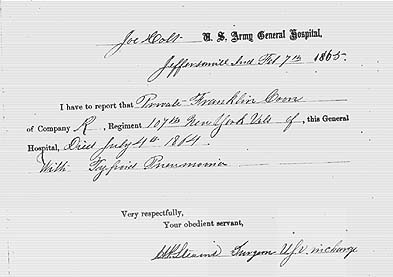 Joe Holt U. S. Army General Hospital,
Jeffersonville Ind Feb 7th 1865.
I have to report that Private Franklin Coon
of Company K, Regiment 107th New York Vols of, this General
Hospital, Died July 4th 1864
With Typhoid Pneumonia
Very respectfully,
Your obedient servant,
Surgeon U.S.V. in charge